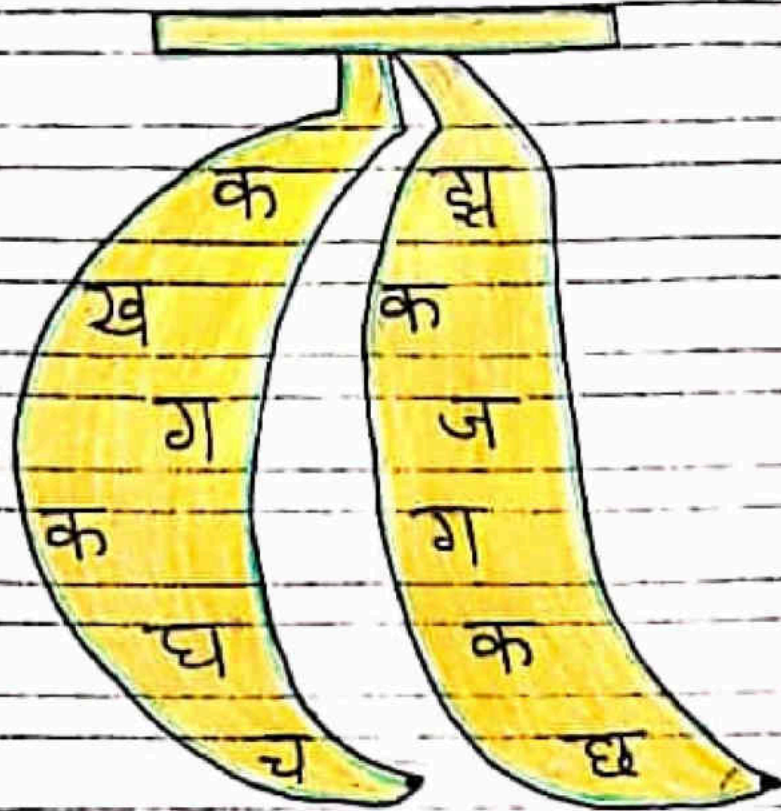 क
ख
ग
क
घ
च
झ
क
ज
ग
क
छ